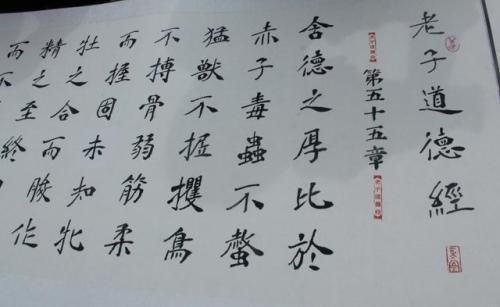 老子道德經
第五十五章
含德之厚比於
赤子毒蟲不螫
猛獸不握攫鳥
不搏骨弱筋柔
而握固未知牝
牡之合而朘作
精之至終
而